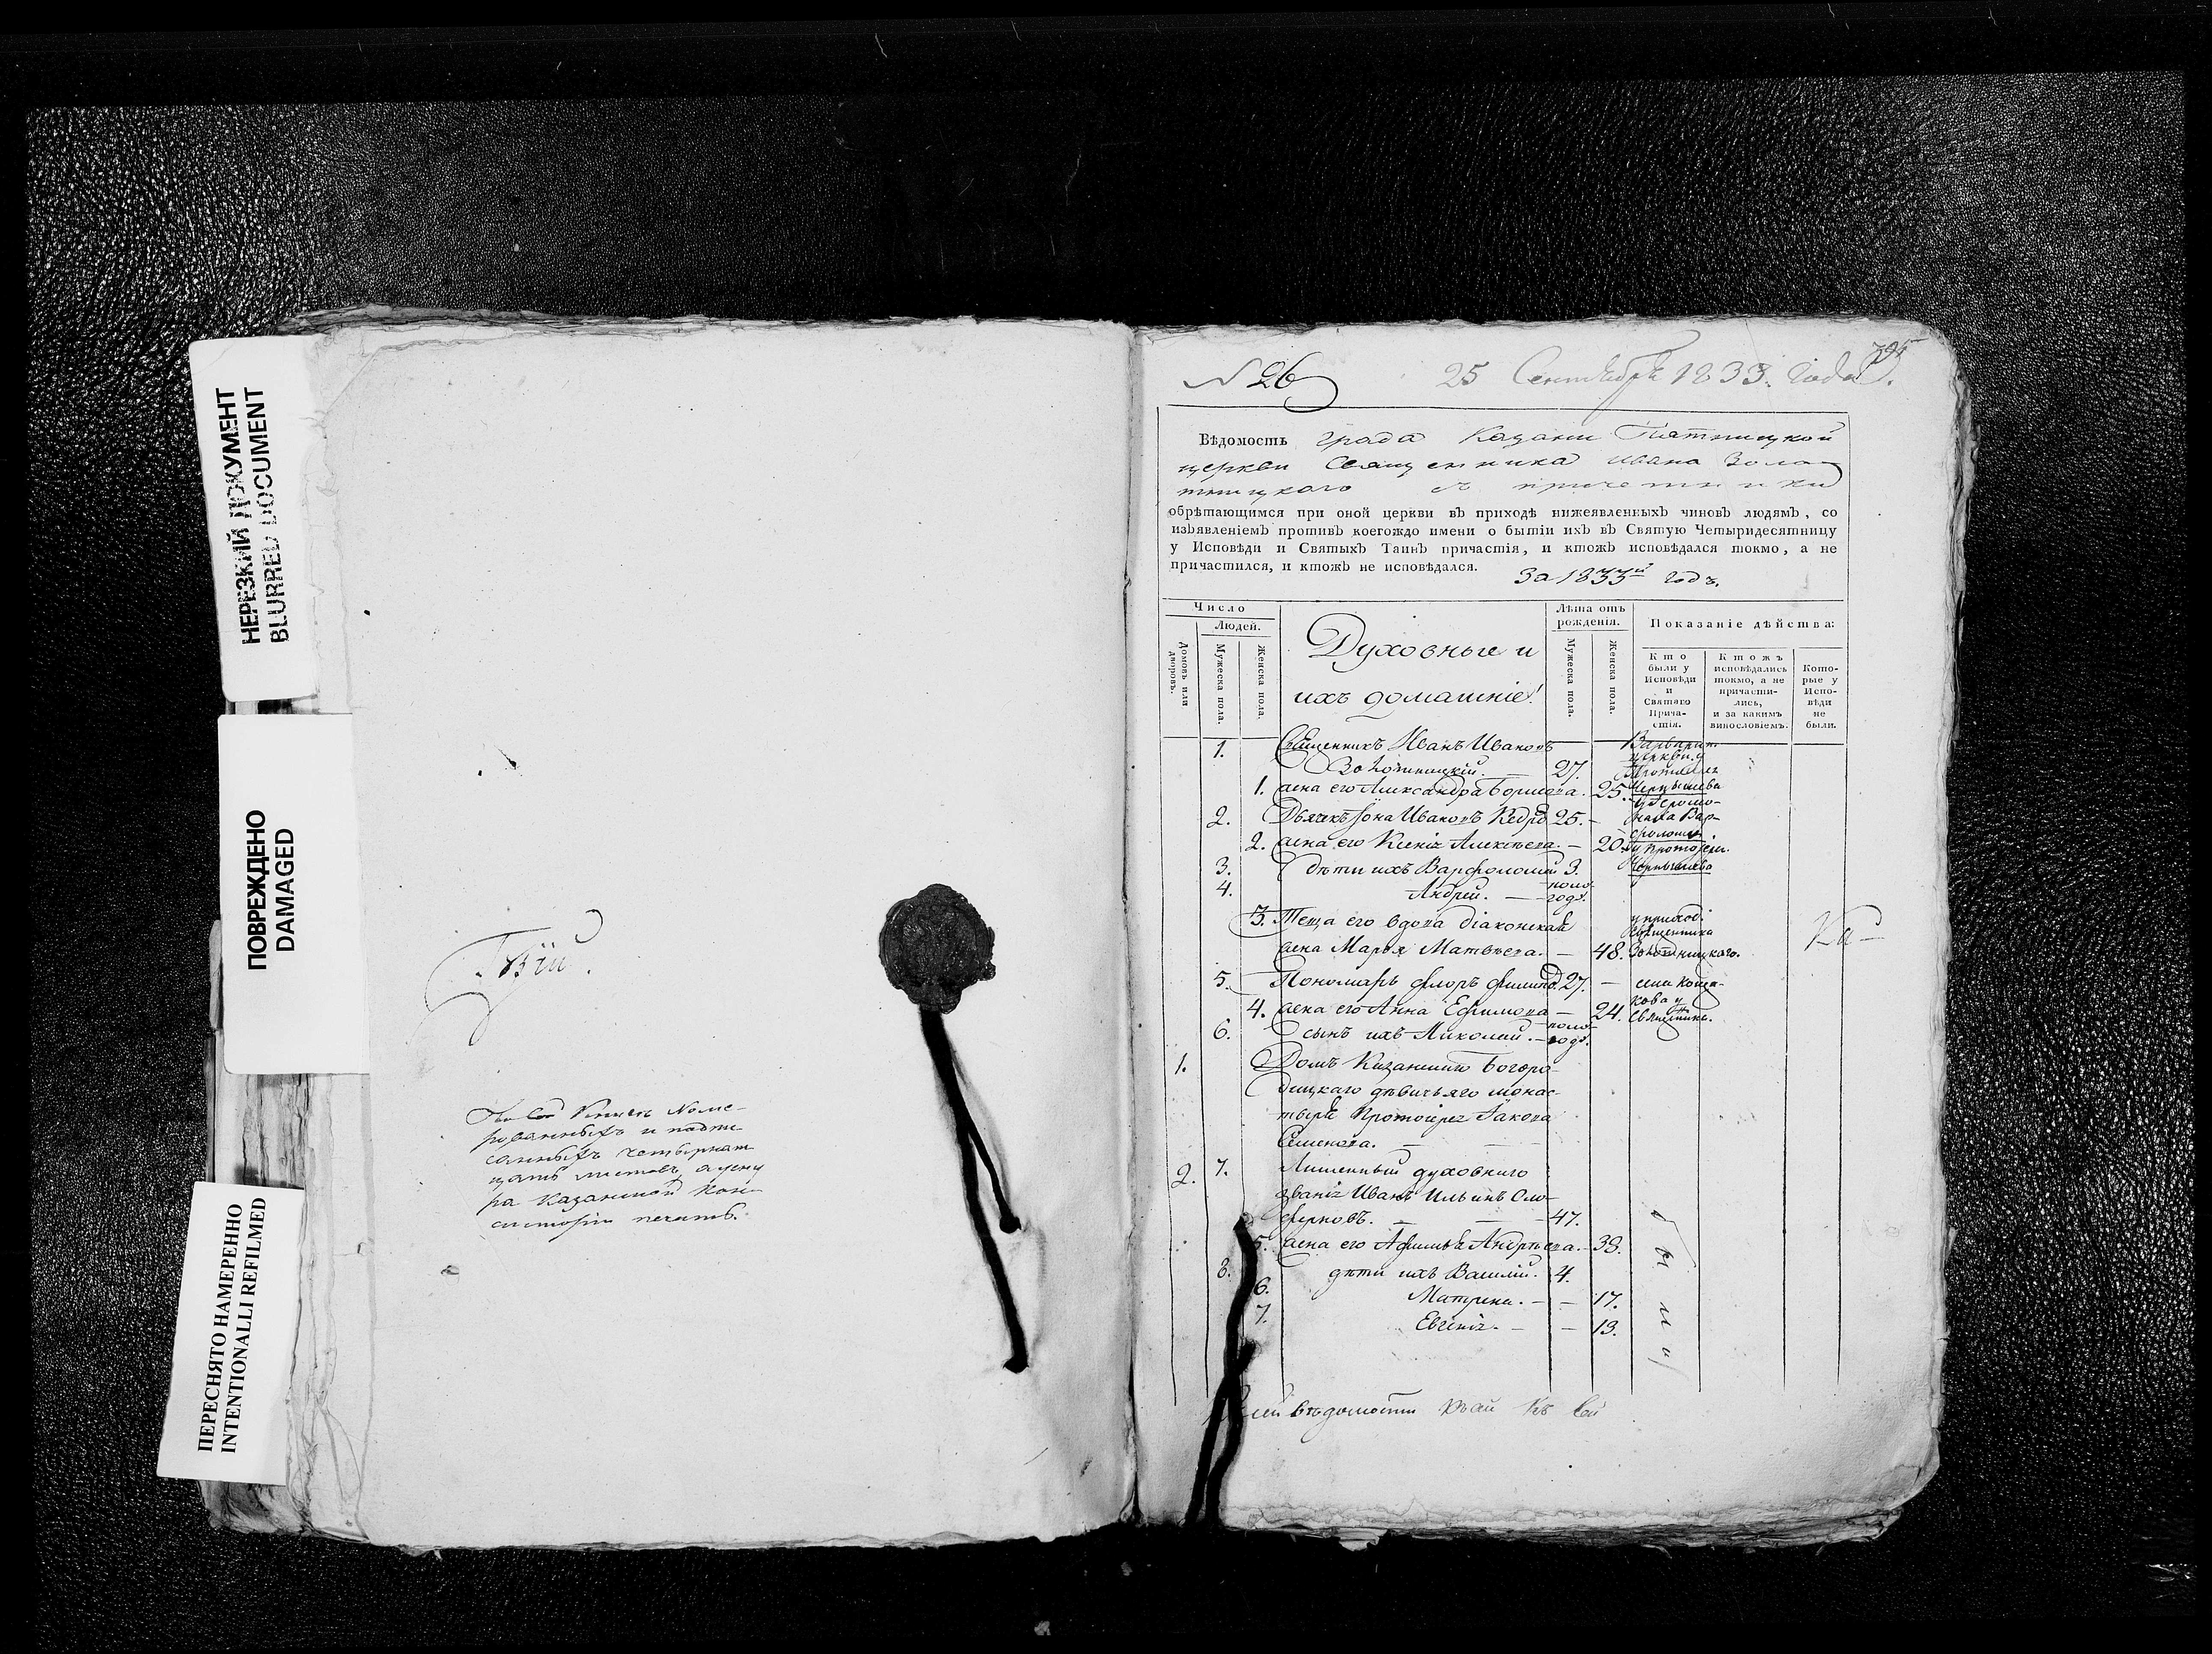 НЕРЕЗКИЙ ДОКУМЕНТ
BLURRED DOCUMENT
ПОВРЕЖДЕНО
DAMAGED
ПЕРЕСНЯТО НАМЕРЕННО
INTENTIONALLI REFILMED
рованныхъ и подпи-
санныхъ четырнат
цать листовъ, а цену
ра Казанской Кон-
систоріи печать.
№ 26
25 Сентября 1833. года.
Вѣдомость града Казани Пятницкой
церкви Священника Ивана Золо
тницкаго съ причетники
обрѣтающимся при оной церкви въ приходѣ нижеявленныхъ чиновъ людямъ, со
изъявленіемъ противъ коегождо имени о бытіи ихъ въ Святую Четыридесятницу
у Исповѣди и Святыхъ Таинъ причастія, и ктожъ исповѣдался токмо, а не
причастился, и ктожъ не исповѣдался.
За 1833й годъ.
Число
Людей.
Домовъ или дворовъ.
Мужеска пола.
Женска пола.
Духовные и
ихъ домашніе
Лѣта отъ
рожденія.
Мужеска пола.
Женска пола.
Показаніе дѣйства:
Кто
были у
Исповѣди
и
Святаго
Прича-
стія.
Ктожъ
исповѣдались
токмо, а не
причасти-
лись,
и за какимъ
винословіемъ.
Кото-
рые у
Испо-
вѣди
не
были.
1. Священникъ Иванъ Ивановъ
Золотницкій. 27.
1. жена его Александра Борисова. 25.
2. Дьячекъ Іона Ивановъ Кедро 25.
2. жена его Ксенія Алексѣева. 20.
3. дѣти ихъ Варфоломей 3.
4. Андрей. полгода.
3. Теща его вдова діаконская
жена Марья Матвѣева. 48.
у приход.
священника
Золотницкаго.
5. Пономарь Флоръ Филипо 27.
4. жена его Анна Ефимова 24.
6. сынъ ихъ Николай. полгода.
1. Домъ Казанскаго Богоро-
дицкаго дѣвичьяго монас-
тыря Протоіерея Іакова
Семенова.
2. 7. Лишенный духовнаго
званія Иванъ Ильинъ Оло-
ферновъ. 47.
5. жена его Афимья Андрѣева. 38.
8. дѣти ихъ Василій. 4.
6. Матрена. 17.
7. Евгенія. 13.
были
сей вѣдомости